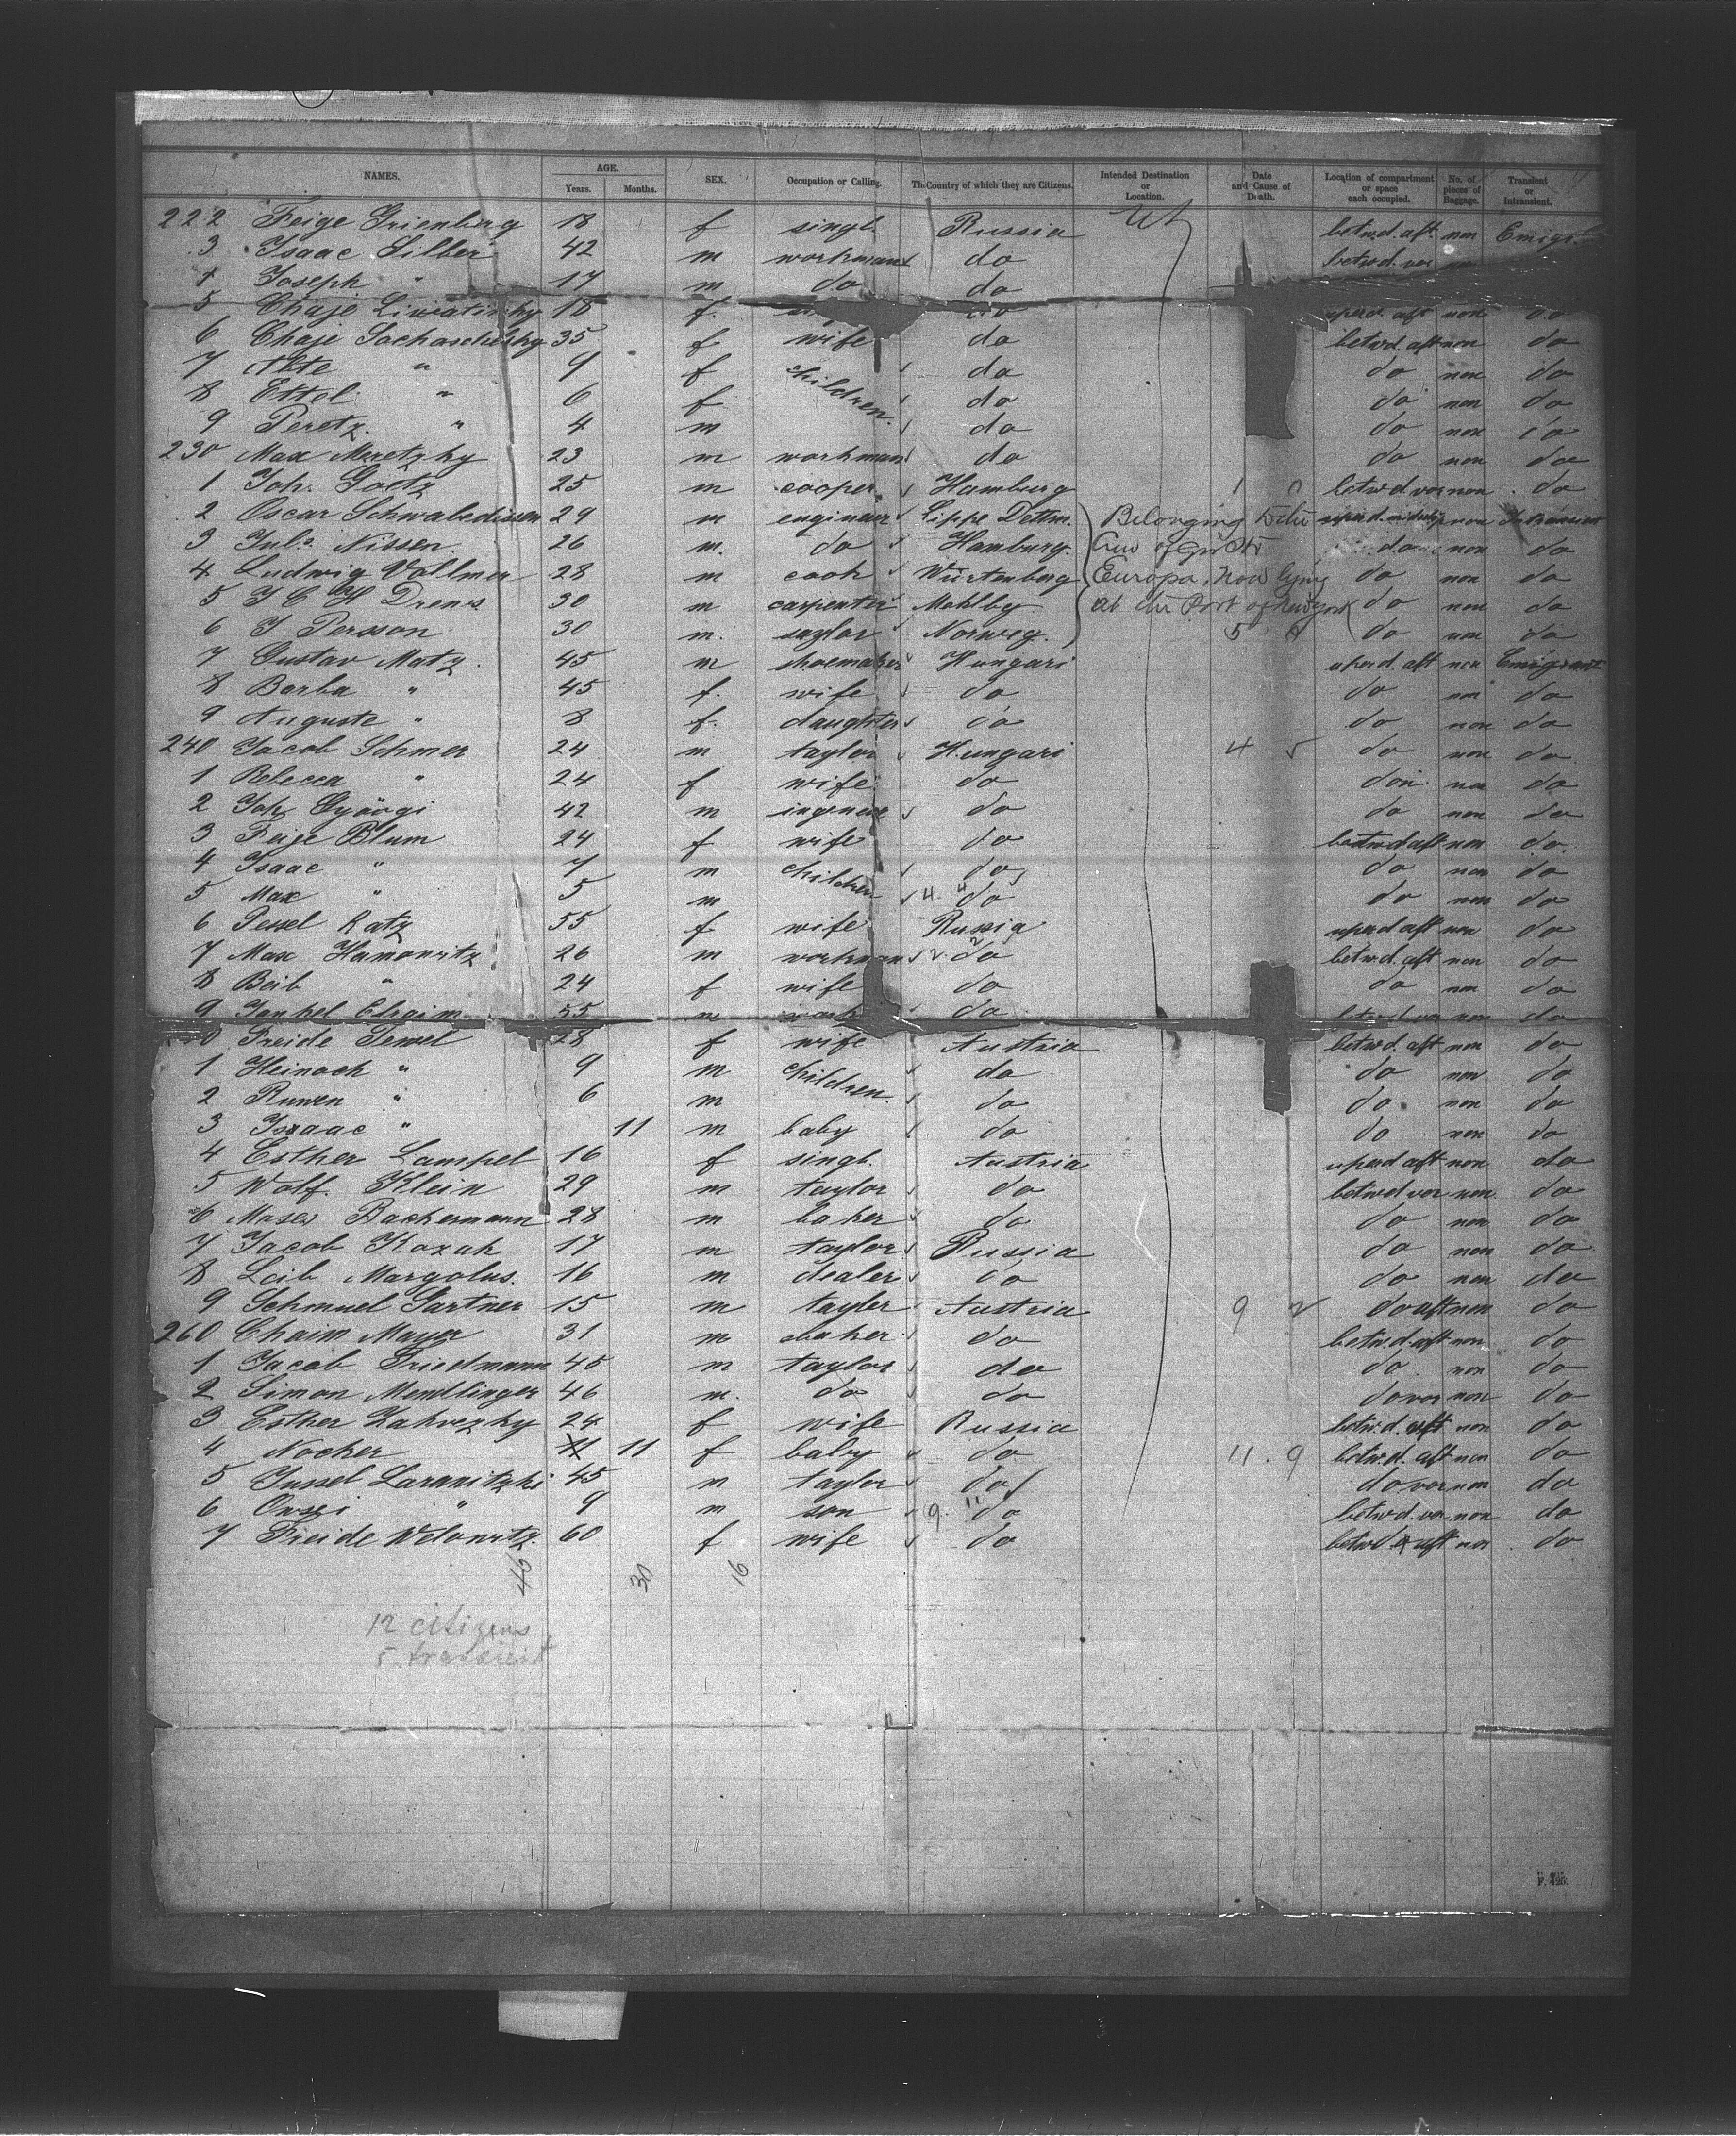 NAMES. AGE. Years. Months. SEX. Occupation or Calling. The Country of which they are Citizens. Intended Destination or Location. Date and Cause of Death. Location of compartment or space each occupied. No. of pieces of Baggage. Transient or Intransient.
222 Feige Grienberg 18 f singl. Russia betwd. aft. non Emigr.
3 Isaac Silber 42 m workman do betwd. vor
4 Joseph " 17 m do do
5 Chaje 18 f. do uperd. aft non do
6 Chaje 35 f wife do betwd. aft non do
7 Alte " 9 f children. do do non do
8 Ettel " 6 f do do non do
9 Peretz. " 4 m do do non do
230 Max Meretzky 23 m workman do do non do
1 Joh. Goetz 25 m cooper Hamburg betwd. vor non do
2 Oscar Schwabedissen 29 m engineer Lippe Dettm. Belonging to the non Intransient
3 Juls. Nissen 26 m. do Hamburg. Crew of do non do
4 Ludwig Vollmer 28 m cook Würtenberg Europa, now lying do non do
5 J C H Drews 30 m carpenter at the Port of New York do non do
6 J Persson 30 m. saylor Norweg. 5 do non do
7 Gustav Matz. 45 m shoemaker Hungari uperd. aft non Emigrant
8 Barba " 45 f. wife do do non do
9 Auguste " 8 f. daughter do do non do
240 Jacob Schmer 24 m taylor Hungari 4 5 do non do
1 Rebecca " 24 f wife do do non do
2 Joh Györgi 42 m do do non do
3 Feige Blum 24 f wife do betwd aft non do.
4 Isaac " 7 m children do do non do
5 Max " 5 m 4 4 do do non do
6 Pessel Katz 55 f wife Russia uperd aft non do
7 Max Hamowitz 26 m workman 2 2 do betwd. aft non do
8 Beib " 24 f wife do do non do
9 Jankel 55 m do betwd vor non do
0 Freide Tewel 28 f wife Austria betwd. aft non do
1 Heinoch " 9 m children. do do non do
2 Ruwen " 6 m do do non do
3 Isaac " 11 m baby do do non do
4 Esther Lampel 16 f singl. Austria uperd aft non do
5 Wolf. Klein 29 m taylor do betwd vor non do
6 Moses Bachermann 28 m baker do do non do
7 Jacob Kozak 17 m taylor Russia do non do
8 Leib Margolus. 16 m dealer do do non do
9 Schmuel Gartner 15 m taylor Austria 9 2 do aft non do
260 Chaim Mayer 31 m baker do betwd. aft non do
1 Jacob Friedmann 45 m taylor do do non do
2 Simon Mendlinger 46 m. do do do vor non do
3 Esther 24 f wife Russia betwd. aft non do
4 Nocher 11 11 f baby do 11. 9 betwd. aft non do
5 Jussel 45 m taylor do do vor non do
6 " 9 m son 9. 11 do betwd. vor non do
7 Freide Welowitz. 60 f wife do betwd. aft non do
46 30 16
12 citizens
5 transient